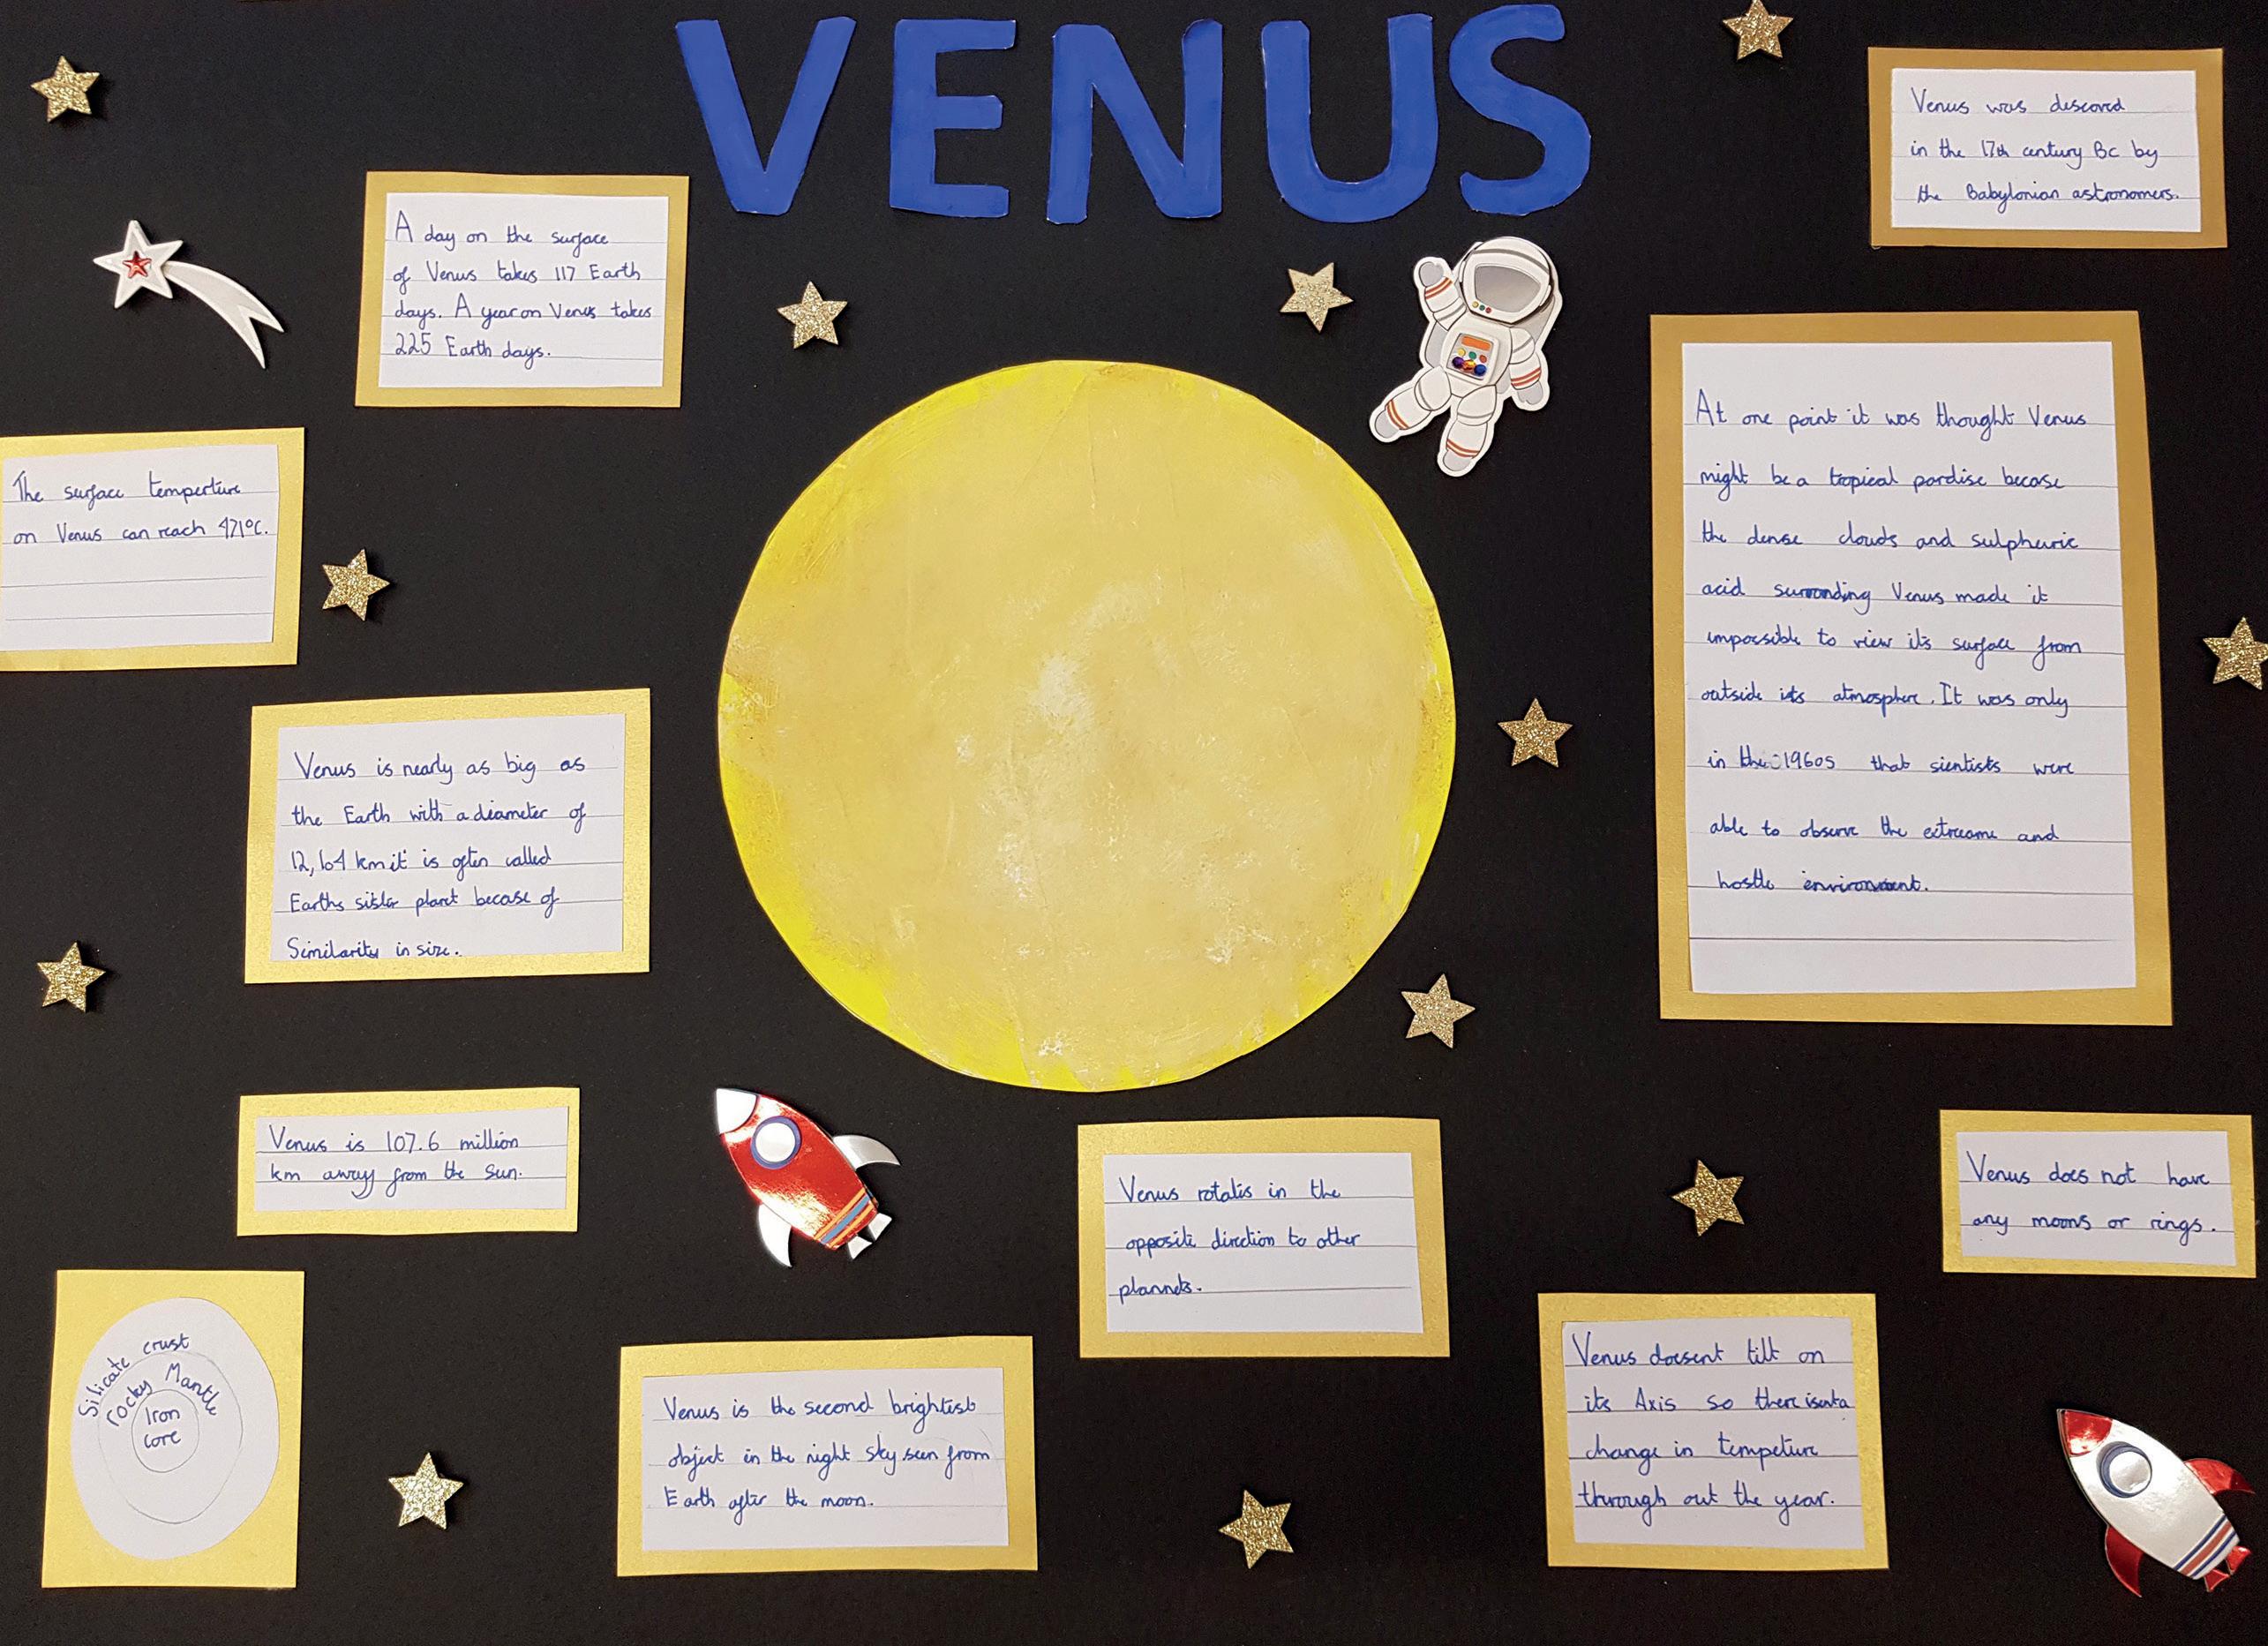 VENUS
Venus was descored
in the 17th century BC by
the Babylonian astronomers.
A day on the surface
of Venus takes 117 Earth
days. A year on Venus takes
225 Earth days.
At one point it was thought Venus
might be a tropical pardise becase
the dense clouds and sulpheric
acid surronding Venus made it
impossible to view its surface from
outside its atmosphere. It was only
in the 1960s that sientists were
able to observe the extreame and
hostle environment.
The surface temperture
on Venus can reach 471°C.
Venus is nearly as big as
the Earth with a diameter of
12,104 km it is often called
Earths sister planet becase of
Similarity in size.
Venus is 107.6 million
km away from the Sun.
Venus rotates in the
opposite direction to other
plannets.
Venus does not have
any moons or rings.
Silicate crust
rocky Mantle
Iron
core
Venus is the second brightest
object in the night sky seen from
Earth after the moon.
Venus doesent tilt on
its Axis so there isenta
change in tempeture
through out the year.